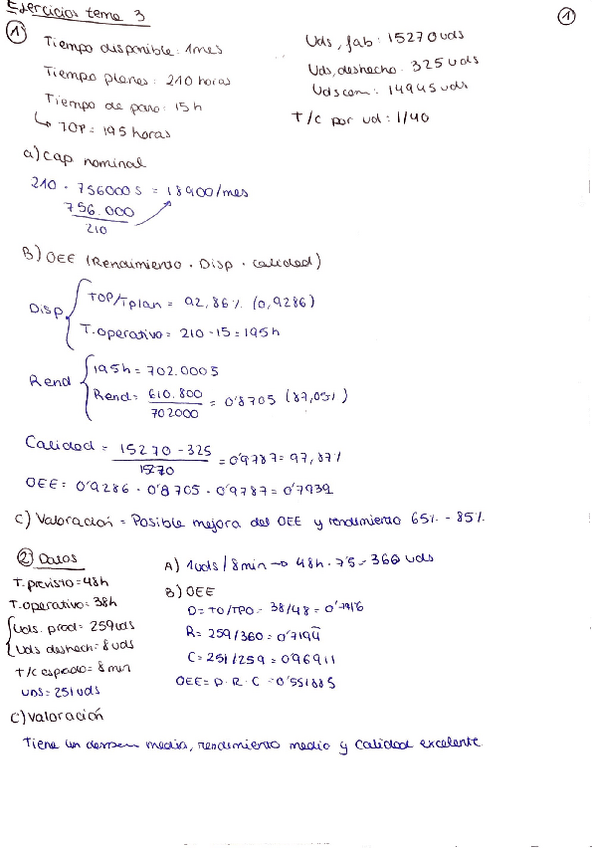 Ejercicios tema 3
1
1
Tiempo disponible: 1mes
Uds. fab: 15270 uds
Tiempo planes: 210 horas
Uds. deshecho: 325 uds
Tiempo de paro: 15h
Uds com: 14945 uds
↳ TOP = 195 horas
T/c por ud: 1/40
a) Cap nominal
210 · 756000 s = 18900/mes
756.000
210
B) OEE (Rendimiento · Disp · Calidad)
Disp
TOP/Tplan = 92,86% (0,9286)
T.operativo = 210 - 15 = 195h
Rend
195h = 702.000 s
Rend = 610.800 / 702000 = 0'8705 (87,05%)
Calidad = 15270 - 325 / 15270 = 0'9787 = 97,87%
OEE = 0'9286 · 0'8705 · 0'9787 = 0'7939
C) Valoración = Posible mejora del OEE y rendimiento 65% - 85%
2 Datos
T. previsto = 48h
T. operativo = 38h
Uds. prod = 259 uds
Uds deshech = 8 uds
T/c esperado = 8 min
UDS = 251 uds
A) 1uds / 8min → 48h · 7'5 = 360 uds
B) OEE
D = TO/TPO = 38/48 = 0'7916
R = 259/360 = 0'7194
C = 251/259 = 0'96911
OEE = D · R · C = 0'551885
C) Valoración
Tiene un media, rendimiento medio y calidad excelente